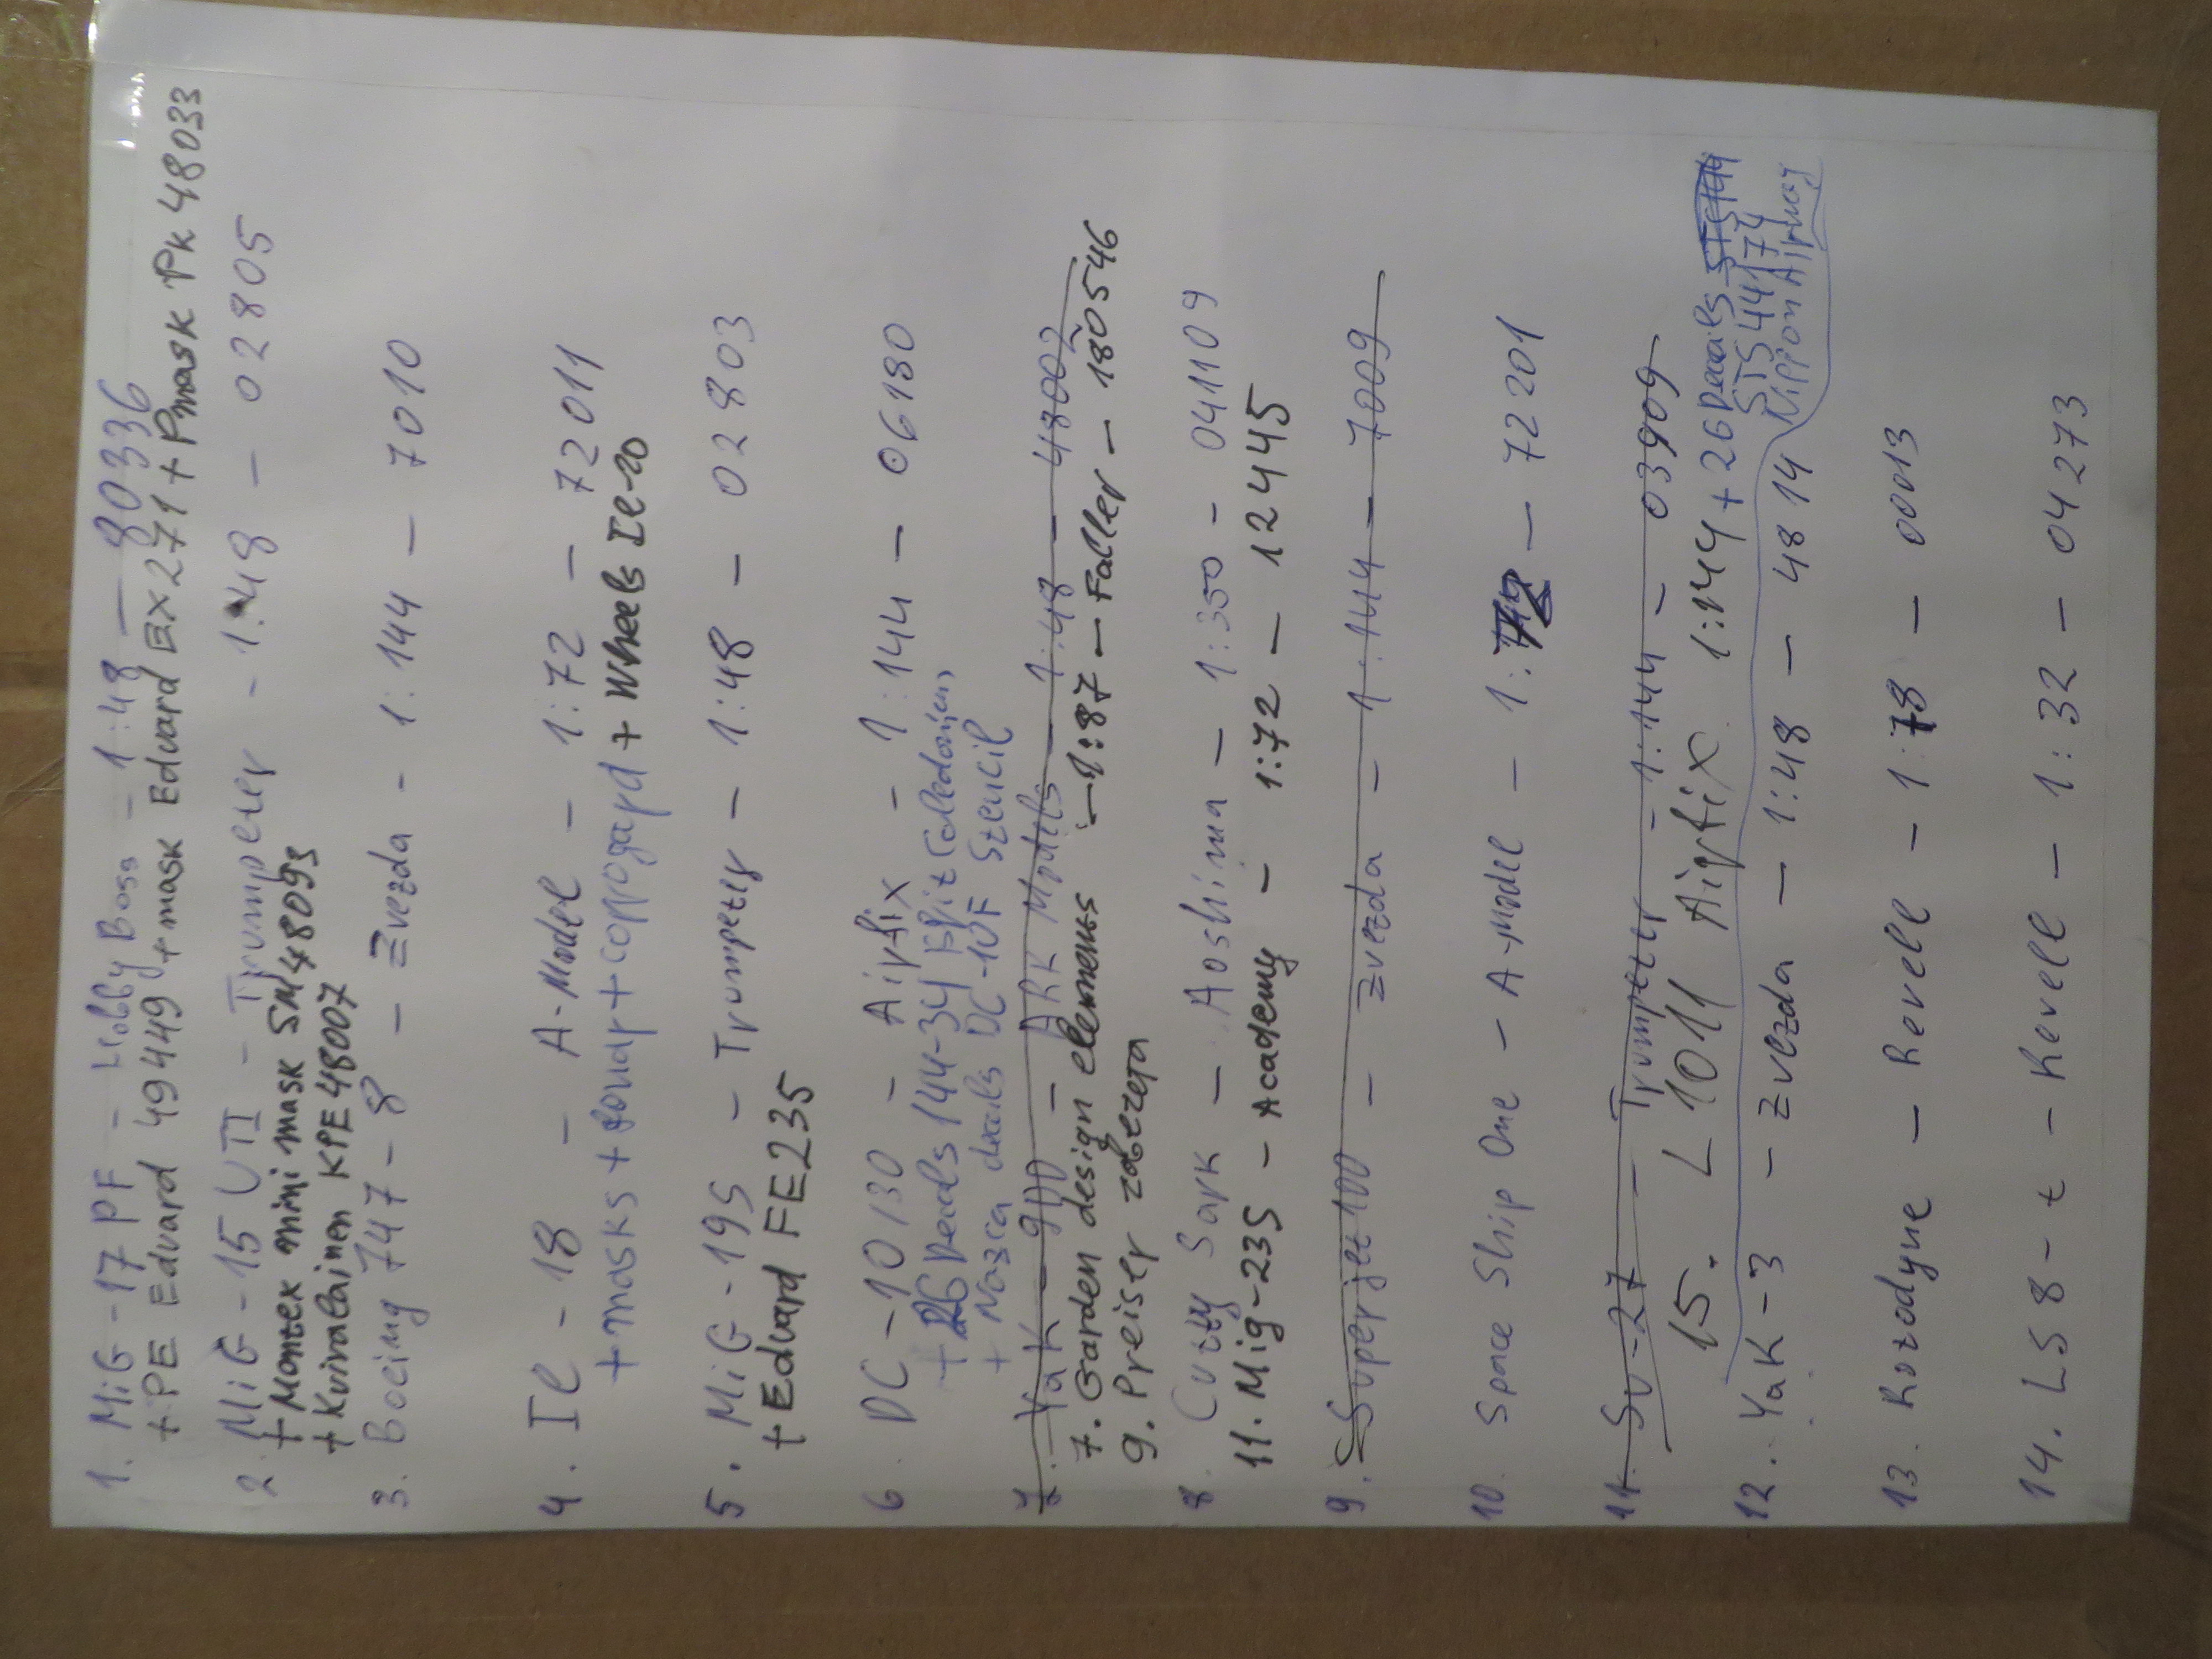 1. MiG-17 PF - Hobby Boss - 1:48 - 80336
+ PE Edvard 49449 + mask Edvard EX271 + Pmask Pk 48033
2. MiG-15 UTI - Trumpeter - 1:48 - 02805
+ Montex mini mask SM48093
+ Kuivalainen KPE48007
3. Boeing 747-8 - Zvezda - 1:144 - 7010
4. Il-18 - A-Model - 1:72 - 72011
+ masks + + Wheels Il-20
5. MiG-19S - Trumpeter - 1:48 - 02803
+ Edvard FE235
6. DC-10/30 - Airfix - 1:144 - 06180
+ 26 Decals 144-341
+ Nazca decals DC-10F Stencil
7. Yak-900 - ARK Models - 1:48 - 48002
7. Garden design elements - 1:87 - Faller - 180546
9. Preiser
8. Cutty Sark - Aoshima - 1:350 - 041109
11. Mig-23S - Academy - 1:72 - 12445
9. Superjet 100 - Zvezda - 1:144 - 7009
10. Space Ship One - A-Model - 1:72 - 72201
11. Su-27 - Trumpeter - 1:144 - 03909
15. L 1011 Airfix 1:144 + 26 Decals
STS44174
Nippon Airway
12. Yak-3 - Zvezda - 1:48 - 4814
13. Rotodyne - Revell - 1:78 - 00013
14. LS 8-t - Revell - 1:32 - 04273